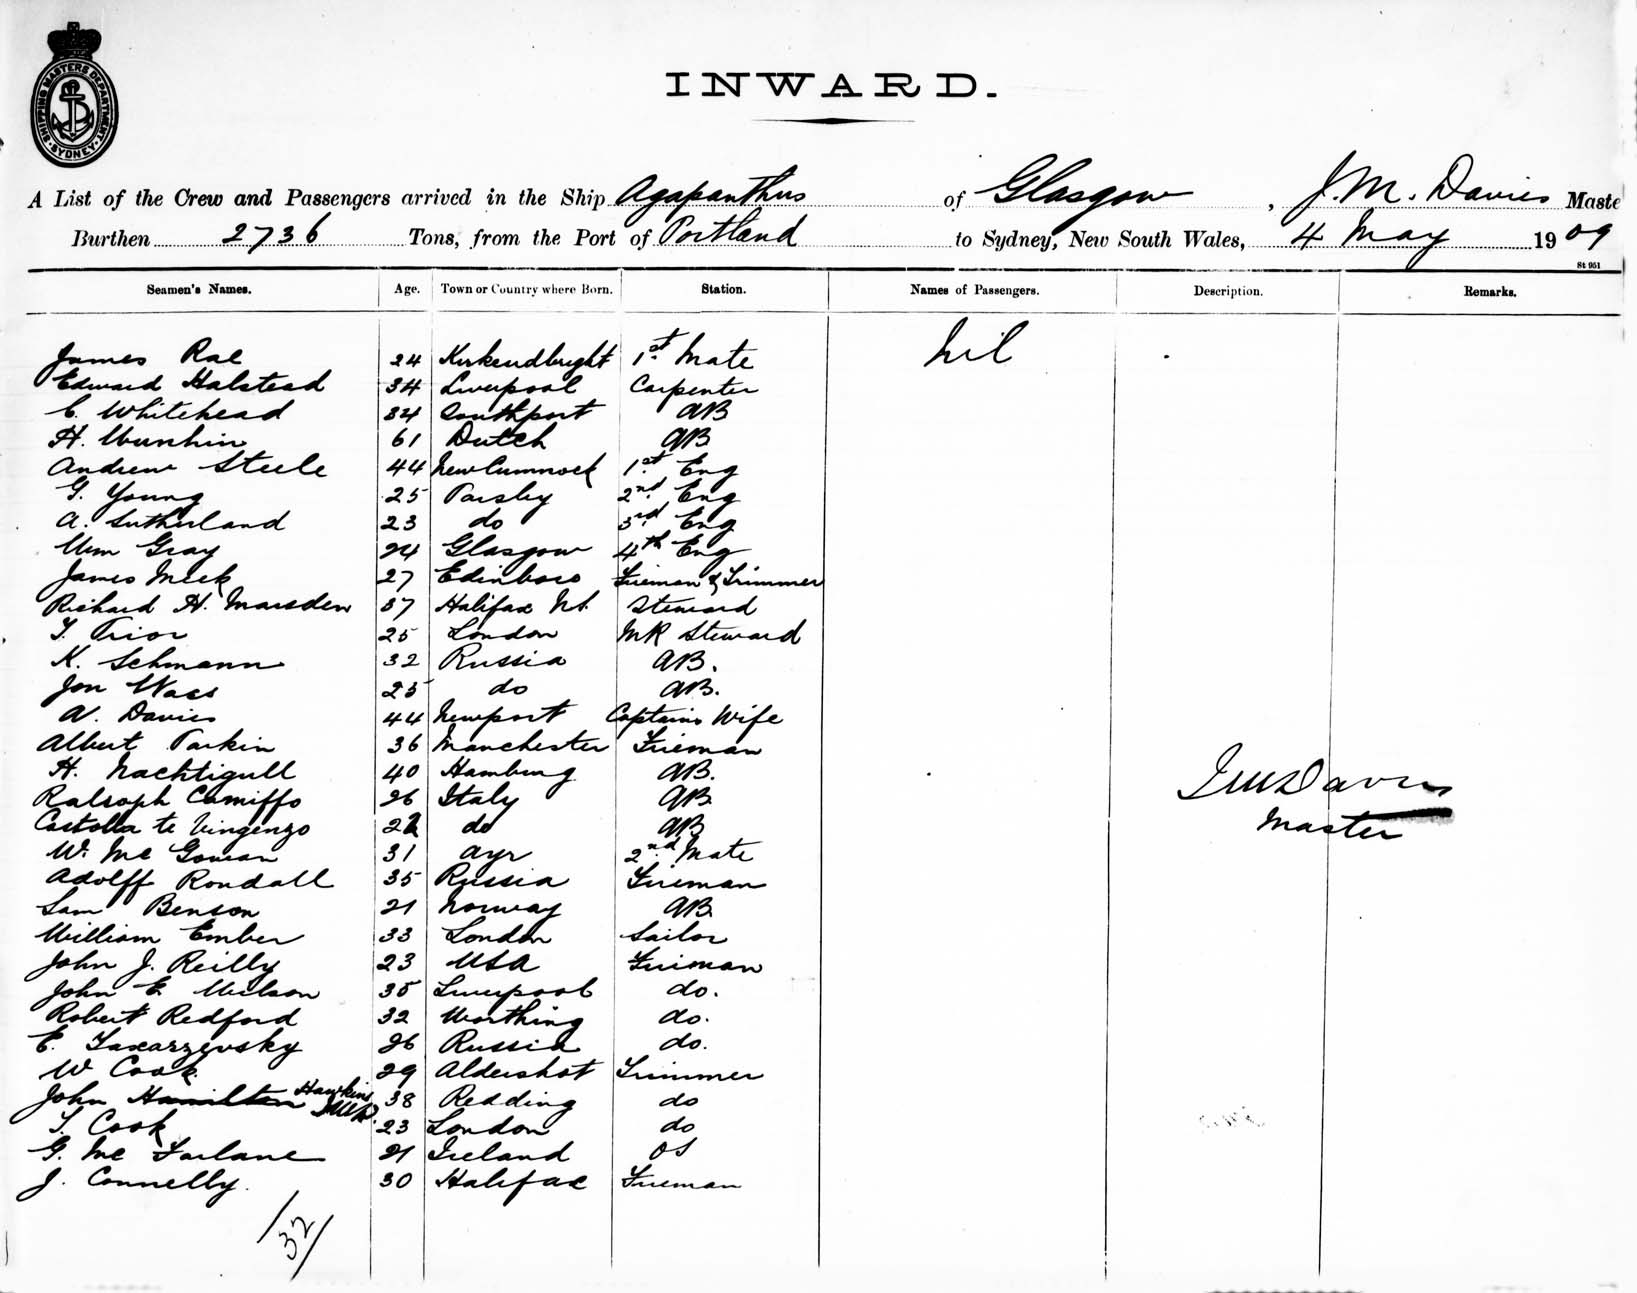 SHIPPING MASTERS DEPARTMENT
SYDNEY
INWARD.
A List of the Crew and Passengers arrived in the Ship Agapanthus of Glasgow, J. M. Davies Maste
Burthen 2736 Tons, from the Port of Portland to Sydney, New South Wales, 4 May 1909
St 951
Seamen's Names. Age. Town or Country where Born. Station. Names of Passengers. Description. Remarks.
James Rae 24 Kirkcudbright 1st Mate nil
Edward Halstead 34 Liverpool Carpenter
C. Whitehead 34 Southport AB
H. 61 Dutch AB
Andrew Steele 44 New Cumnock 1st Eng
G. Young 25 Paisley 2nd Eng
A. Sutherland 23 do 3rd Eng
Wm Gray 24 Glasgow 4th Eng
James Meek 27 Edinboro Fireman & Trimmer
Richard H. Marsden 37 Halifax NS. Steward
T. Prior 25 London MR Steward
K. Schmann 32 Russia AB.
Jon Waes 25 do AB.
A. Davies 44 Newport Captains Wife
Albert Parkin 36 Manchester Fireman
H. Nachtigull 40 Hamburg AB.
Ralsoph Camiffo 26 Italy AB
Castolla te Vingenzo 22 do AB
W. Mc Gowan 31 Ayr 2nd Mate
Adolff Rondall 35 Russia Fireman
Sam Benson 21 Norway AB
William Ember 33 London Sailor
John J. Reilly 23 USA Fireman
John E Wilson 35 Liverpool do.
Robert Redford 32 Worthing do.
E. Taxarzevsky 26 Russia do.
W Cook 29 Aldershot Trimmer
John Hamilton Hawkins JMD. 38 Redding do
T. Cook 23 London do
G. Mc Farlane 21 Ireland OS
J. Connelly. 30 Halifax Fireman
JM Davies
Master
/32/